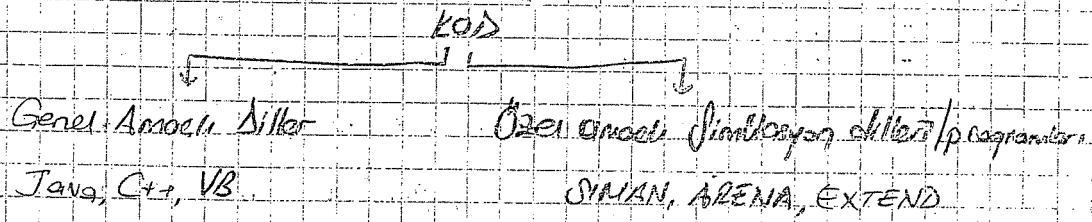 KOD
Genel Amaçlı Diller
Özel amaçlı Simülasyon dilleri/programları
Java, C++, VB
SIMAN, ARENA, EXTEND